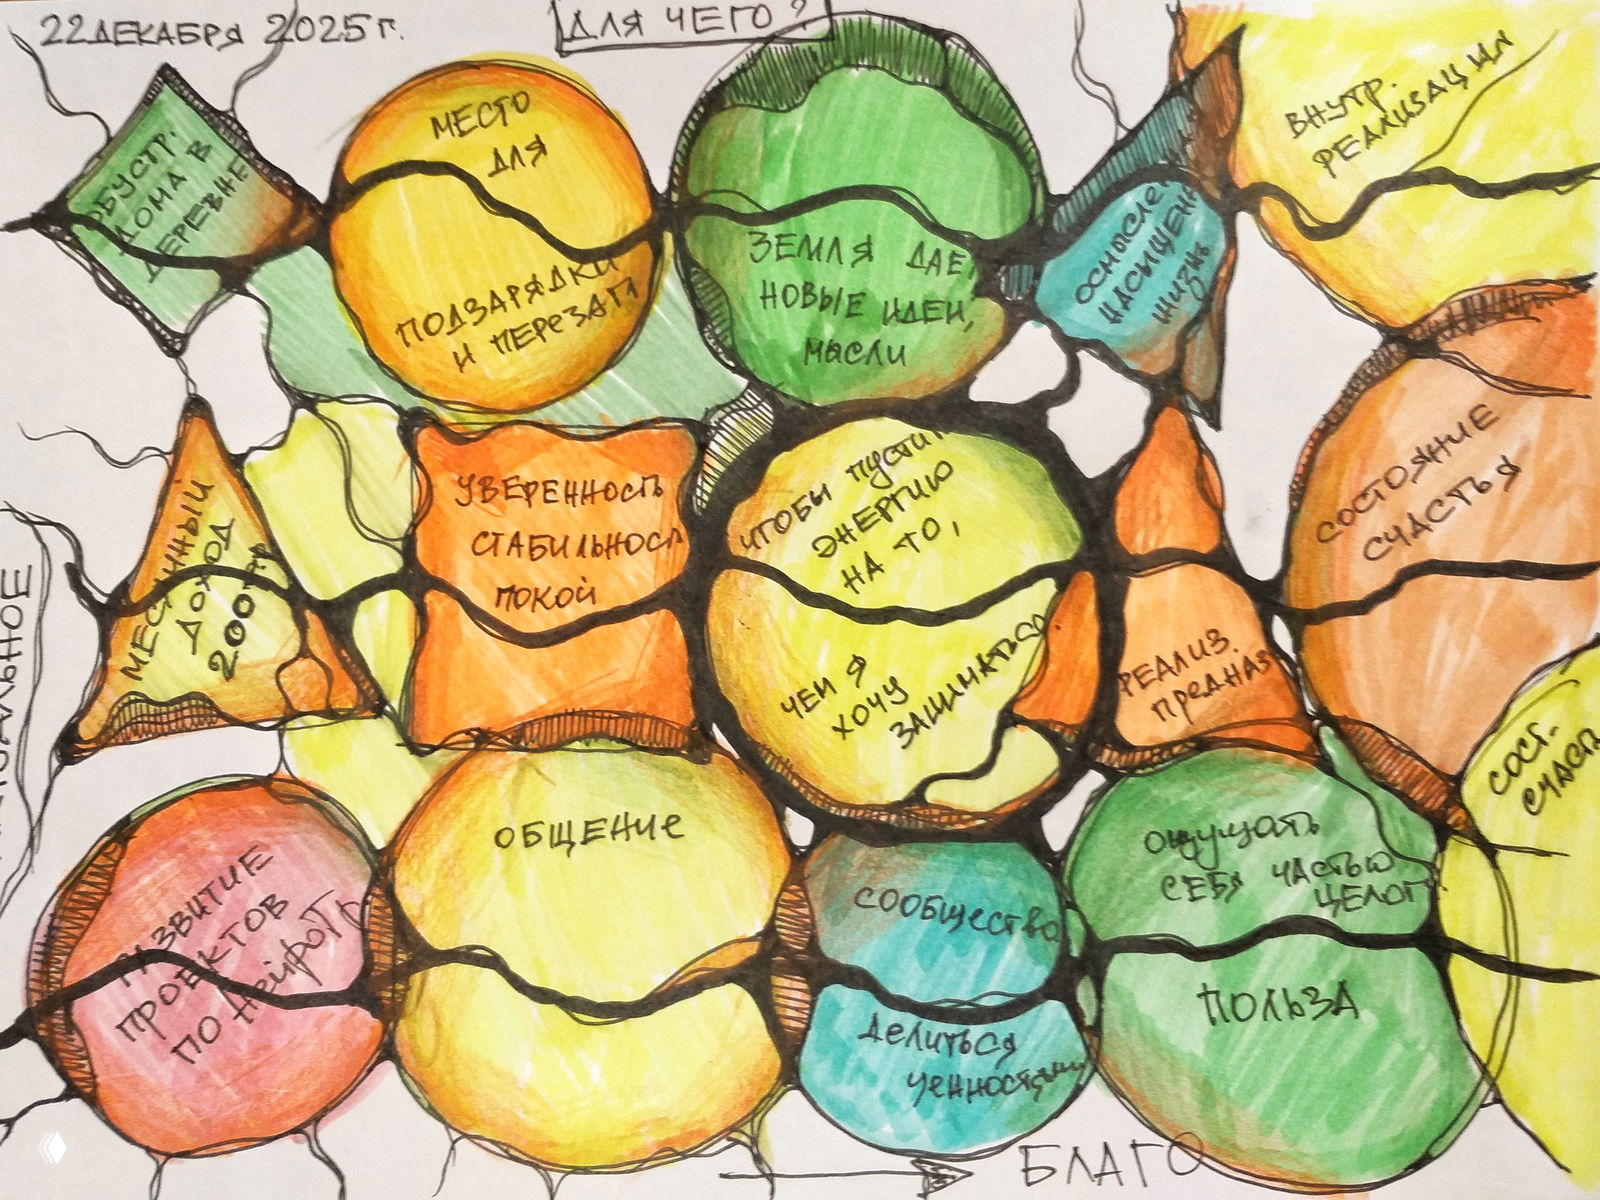 22 ДЕКАБРЯ 2025 г.
ДЛЯ ЧЕГО?
ОБУСТР.
ДОМА В
ДЕРЕВНЕ
МЕСТО
ДЛЯ
ПОДЗАРЯДКИ
И ПЕРЕЗАГ
ЗЕМЛЯ ДАЕТ
НОВЫЕ ИДЕИ,
МЫСЛИ
ОСМЫСЛЕ
НАСЫЩЕН
ЖИЗНЬ
ВНУТР.
РЕАЛИЗАЦИЯ
МЕСЯЧНЫЙ
ДОХОД
200
УВЕРЕННОСТЬ
СТАБИЛЬНОСТ
ПОКОЙ
ЧТОБЫ ПУСТИТ
ЭНЕРГИЮ
НА ТО,
ЧЕМ Я
ХОЧУ
ЗАНИМАТЬСЯ.
РЕАЛИЗ.
ПРЕДНАЗ
СОСТОЯНИЕ
СЧАСТЬЯ
СОСТ.
СЧАСТЬ
РАЗВИТИЕ
ПРОЕКТОВ
ПО НЕЙРОГР
ОБЩЕНИЕ
СООБЩЕСТВО
ДЕЛИТЬСЯ
ЦЕННОСТЯМИ
ОЩУЩАТЬ
СЕБЯ ЧАСТЬЮ
ЦЕЛОГ
ПОЛЬЗА
БЛАГО